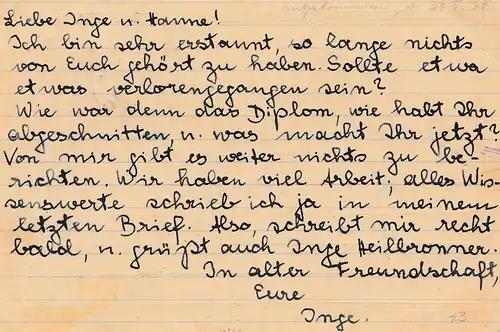 Liebe Inge u. Hanne!
Ich bin sehr erstaunt, so lange nichts
von Euch gehört zu haben. Sollte etwa
etwas verlorengegangen sein?
Wie war denn das Diplom, wie habt Ihr
abgeschnitten, u. was macht Ihr jetzt?
Von mir gibt es weiter nichts zu be-
richten. Wir haben viel Arbeit; alles Wis-
senswerte schrieb ich ja in meinem
letzten Brief. Also, schreibt mir recht
bald, u. grüßt auch Inge Heilbronner.
In alter Freundschaft,
Eure
Inge.